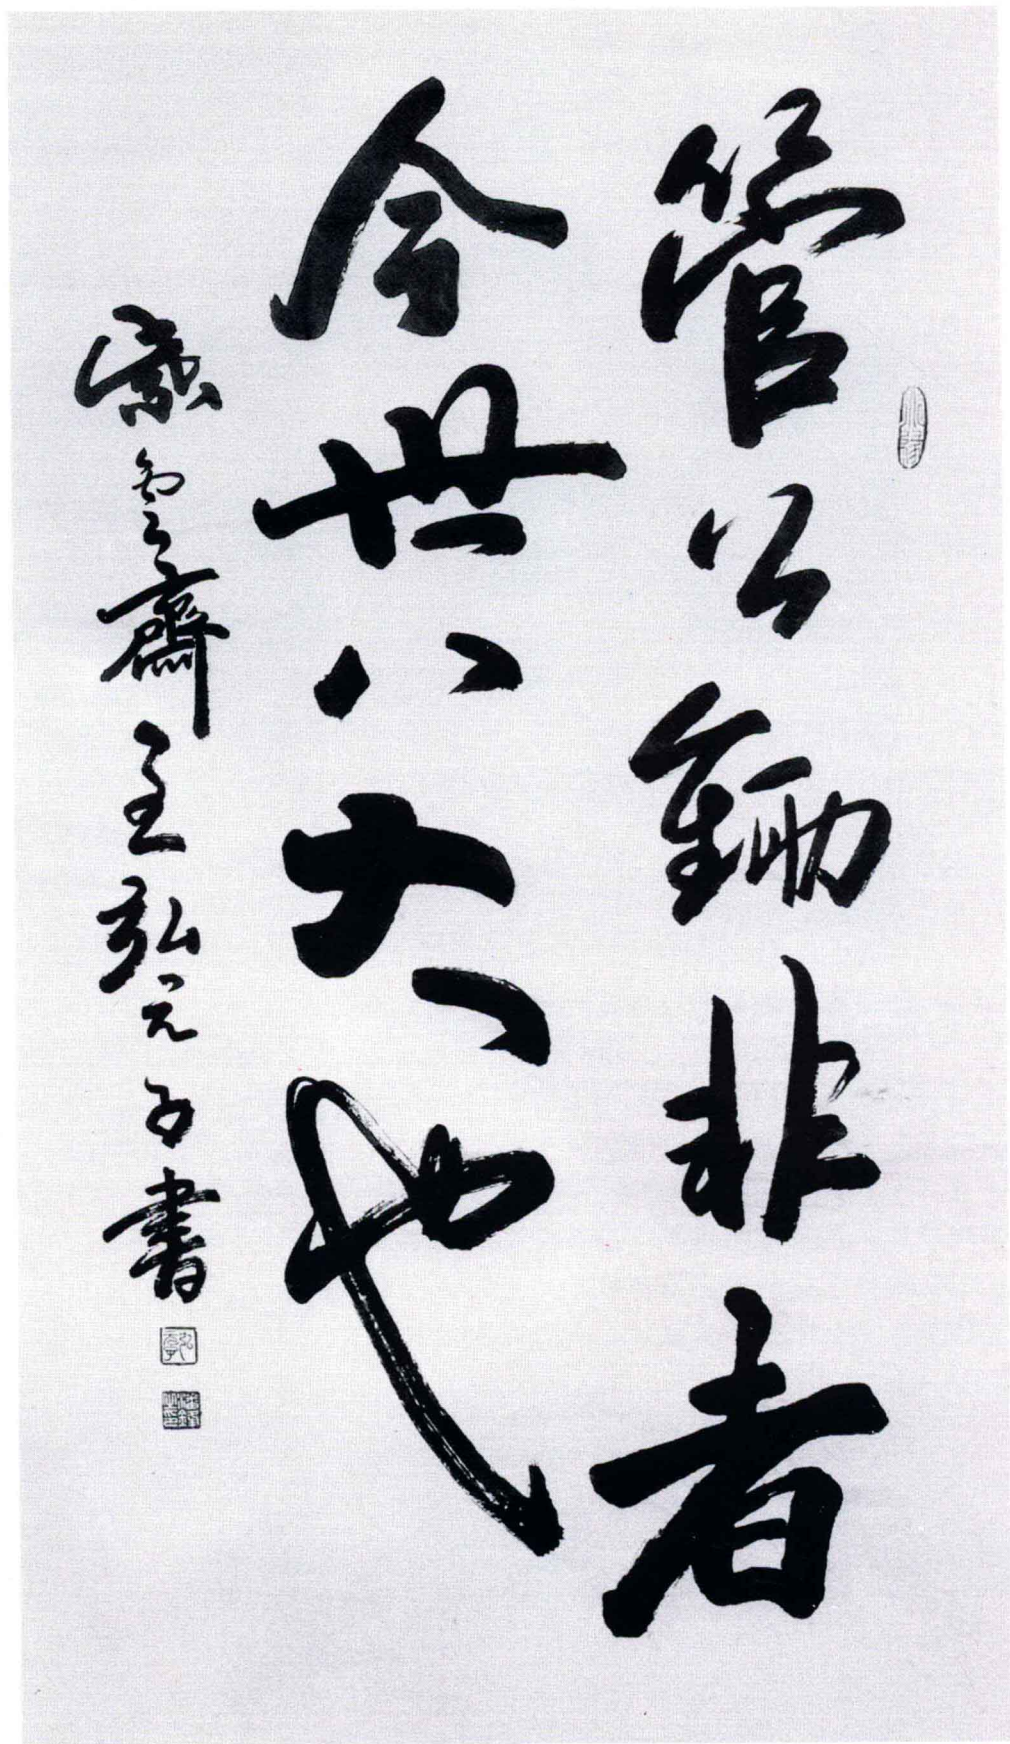 管公鋤非者
今世八大也
雲齋主弘元子書